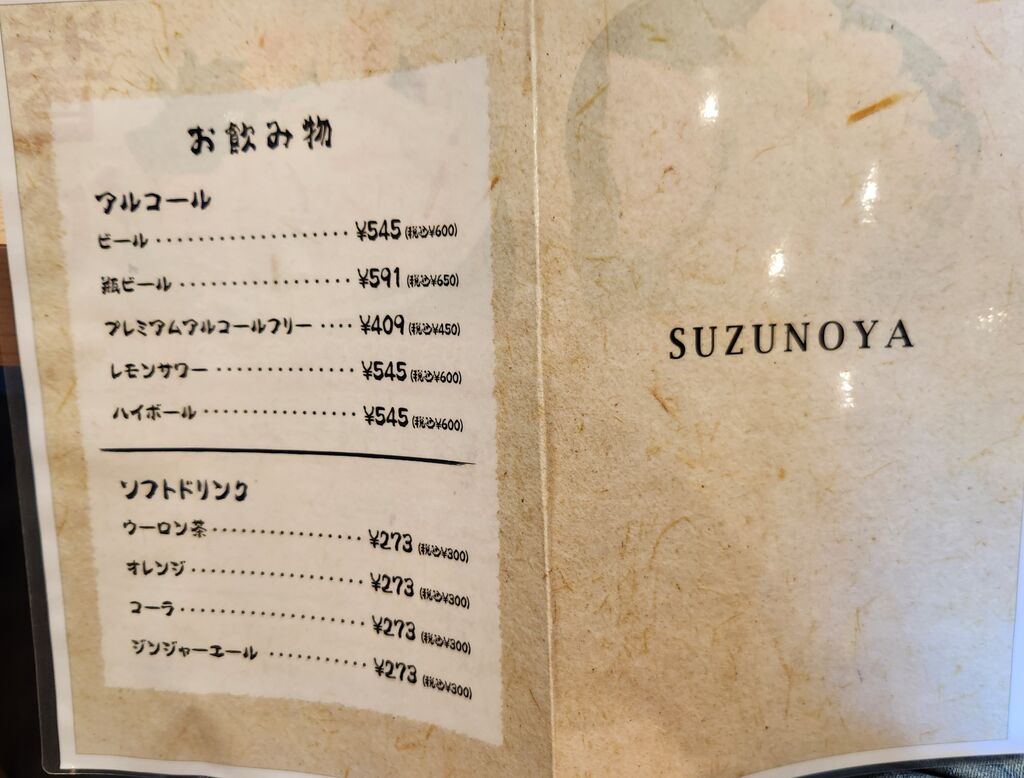 お飲み物
アルコール
ビール ・・・・・・・・・・・・・・・・・・・ ¥545 (税込¥600)
瓶ビール ・・・・・・・・・・・・・・・・・ ¥591 (税込¥650)
プレミアムアルコールフリー ・・・・ ¥409 (税込¥450)
レモンサワー ・・・・・・・・・・・・・・ ¥545 (税込¥600)
ハイボール ・・・・・・・・・・・・・・・ ¥545 (税込¥600)
ソフトドリンク
ウーロン茶 ・・・・・・・・・・・・・・・ ¥273 (税込¥300)
オレンジ ・・・・・・・・・・・・・・・・・ ¥273 (税込¥300)
コーラ ・・・・・・・・・・・・・・・・・・ ¥273 (税込¥300)
ジンジャーエール ・・・・・・・・・・ ¥273 (税込¥300)
SUZUNOYA